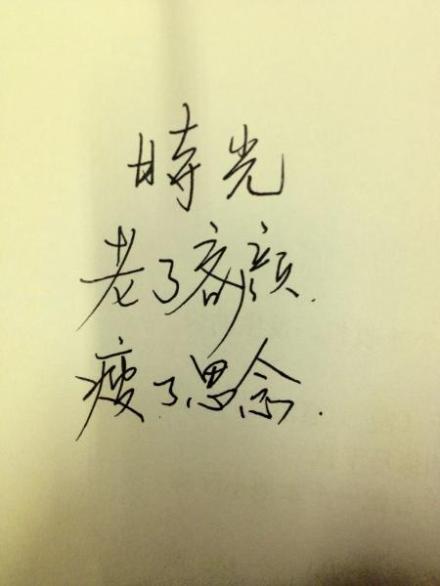 時光
老了容颜.
瘦了思念.